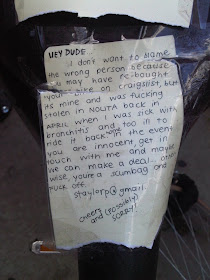 HEY DUDE...
I don't want to blame
the wrong person because
u may have re-bought
your bike on craigslist, but
its mine and was fucking
stolen in NOLITA back in
APRIL when I was sick with
bronchitis and too ill to
ride it back home. In the event
you are innocent, get in
touch with me and maybe
we can make a deal... other
wise, you're a scumbag and
fuck off.
staylorp@gmail
cheers
and (possibly)
SORRY